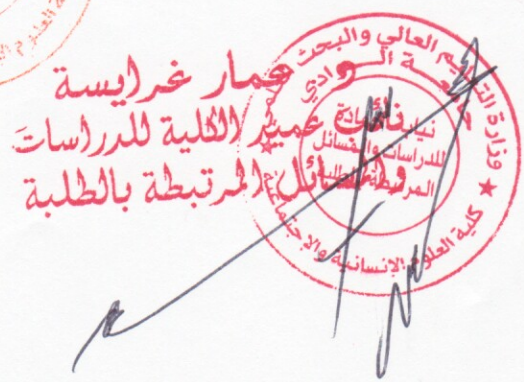 عمار غرايسة
نائب عميد الكلية للدراسات
والمسائل المرتبطة بالطلبة
وزارة التعليم العالي والبحث
جامعة الوادي
نيابة العمادة
للدراسات والمسائل
المرتبطة بالطلبة
كلية العلوم الإنسانية والاجتماعية